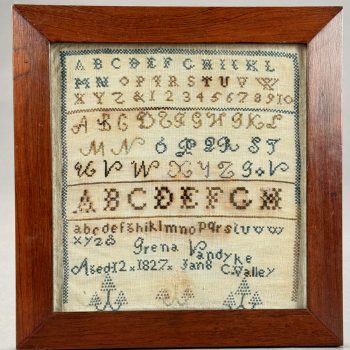 A B C D E F G H I K L
M N O P Q R S T U V W
X Y Z & 1 2 3 4 5 6 7 8 9 10
A B C D E F G H I K L
M N O P Q R S T
U V W X Y Z & V
A B C D E F G H
a b c d e f g h i k l m n o p q r s t u v w
x y z &
Grena Vandyke
Aged 12 x 1827 x Jan 8 C. Valley